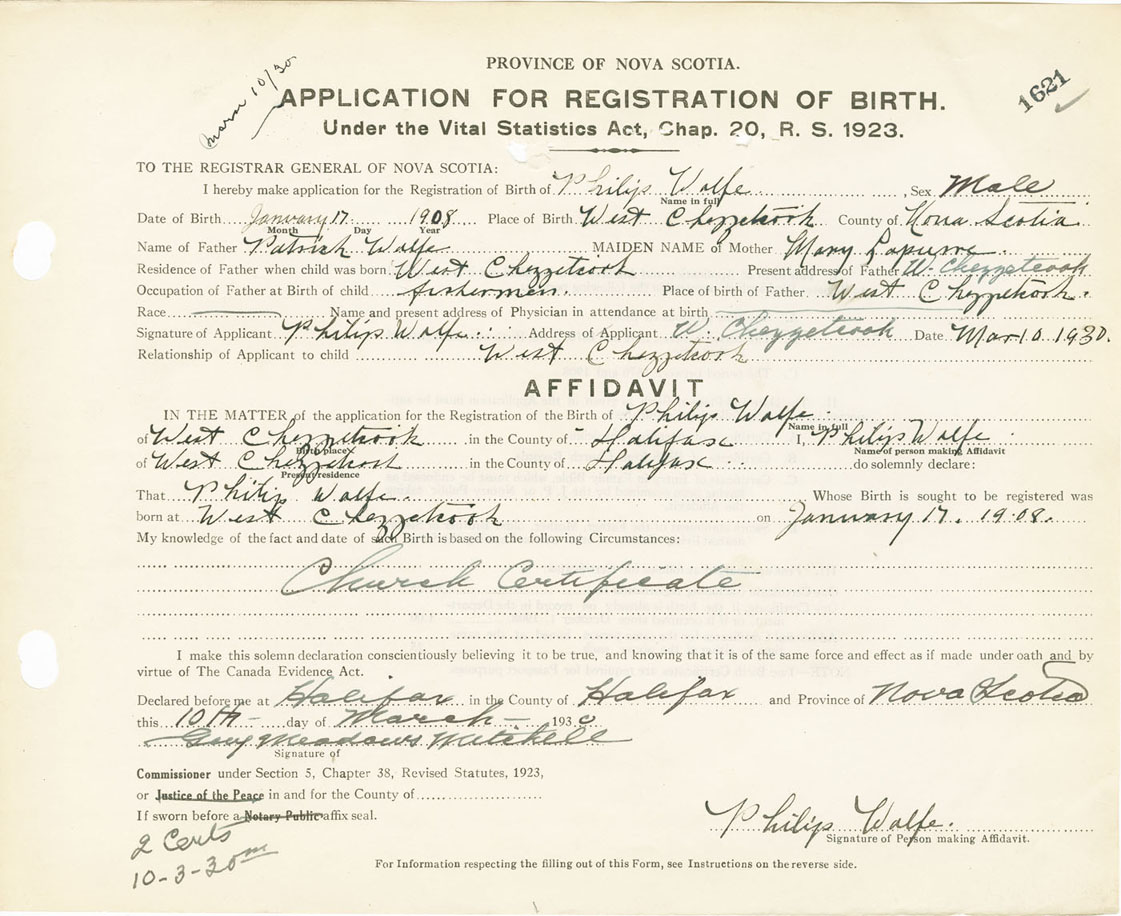 PROVINCE OF NOVA SCOTIA.
Marr 10/30
1621
APPLICATION FOR REGISTRATION OF BIRTH.
Under the Vital Statistics Act, Chap. 20, R. S. 1923.
TO THE REGISTRAR GENERAL OF NOVA SCOTIA:
I hereby make application for the Registration of Birth of Philip Wolfe Sex Male
Name in full
Date of Birth January 17 1908 Place of Birth West Chezzetcook County of Nova Scotia
Month Day Year
Name of Father Patrick Wolfe MAIDEN NAME of Mother Mary Lapierre
Residence of Father when child was born West Chezzetcook Present address of Father W. Chezzetcook
Occupation of Father at Birth of child fishermen. Place of birth of Father West Chezzetcook.
Race Name and present address of Physician in attendance at birth
Signature of Applicant Philip Wolfe Address of Applicant W. Chezzetcook Date Mar 10. 1930.
Relationship of Applicant to child West Chezzetcook
AFFIDAVIT
IN THE MATTER of the application for the Registration of the Birth of Philip Wolfe
Name in full
of West Chezzetcook in the County of Halifax I, Philip Wolfe
Birth place Name of person making Affidavit
of West Chezzetcook in the County of Halifax do solemnly declare:
Present residence
That Philip Wolfe. Whose Birth is sought to be registered was
born at West Chezzetcook on January 17. 1908.
My knowledge of the fact and date of such Birth is based on the following Circumstances:
Church Certificate
I make this solemn declaration conscientiously believing it to be true, and knowing that it is of the same force and effect as if made under oath and by
virtue of The Canada Evidence Act.
Declared before me at Halifax in the County of Halifax and Province of Nova Scotia
this 10th day of March 1930
Guy Meadows Mitchell
Signature of
Commissioner under Section 5, Chapter 38, Revised Statutes, 1923,
or Justice of the Peace in and for the County of
If sworn before a Notary Public affix seal.
Philip Wolfe.
Signature of Person making Affidavit.
2 Certs
10-3-30
For Information respecting the filling out of this Form, see Instructions on the reverse side.